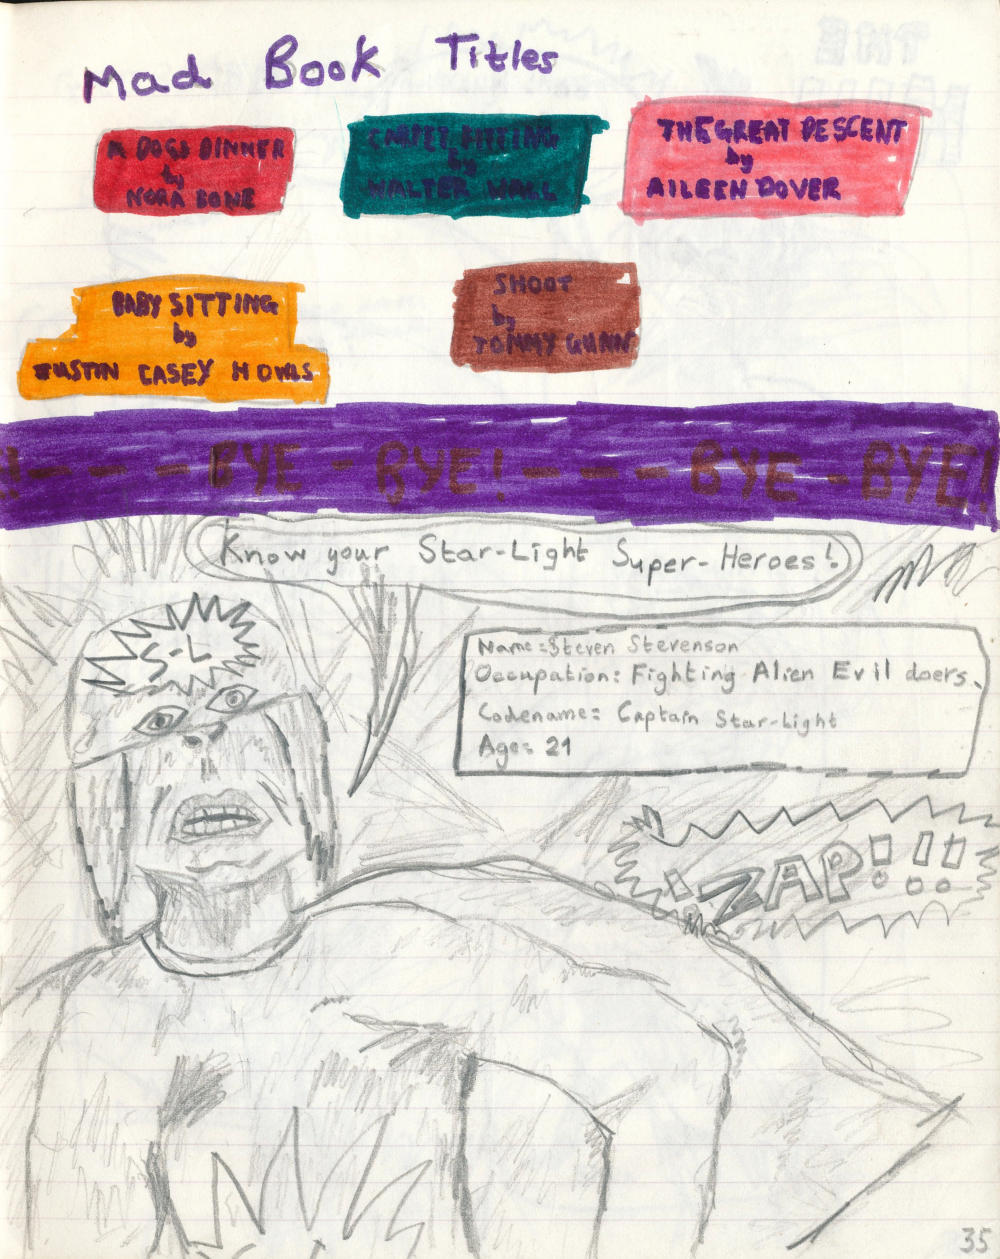 Mad Book Titles
A DOGS DINNER
by
NORA BONE
CARPET FITTING
by
WALTER WALL
THE GREAT DESCENT
by
AILEEN DOVER
BABY SITTING
by
JUSTIN CASEY HOWLS
SHOOT
by
TOMMY GUNN
!- - - - BYE - BYE! - - - - BYE - BYE!
Know your Star-Light Super-Heroes!
S-L
Name: Steven Stevenson
Occupation: Fighting Alien Evil doers.
Codename: Captain Star-Light
Age: 21
ZAP!!!
35